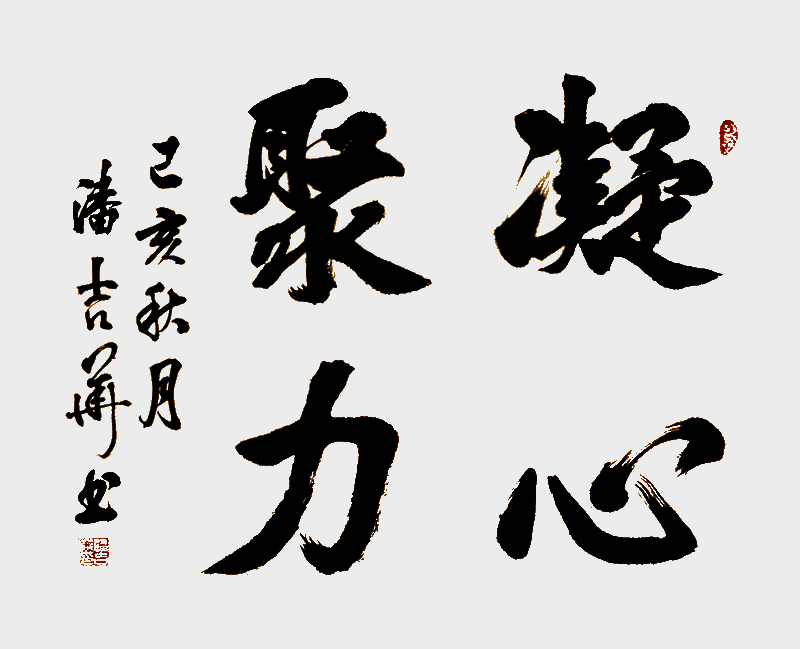 凝心
聚力
己亥秋月
潘吉華书